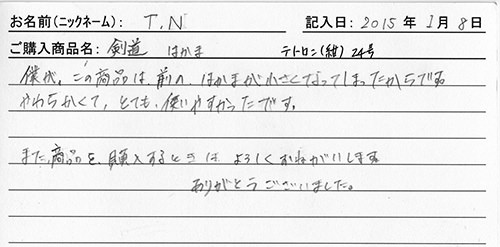 お名前(ニックネーム): T.N 記入日: 2015 年 1月 8日
ご購入商品名: 剣道 はかま テトロン(紺) 24号
僕が、この商品は、前の、はかまが小さくなってしまったからです。
やわらかくて、とても、使いやすかったです。
また、商品を、購入するときは よろしくおねがいします
ありがとうございました。